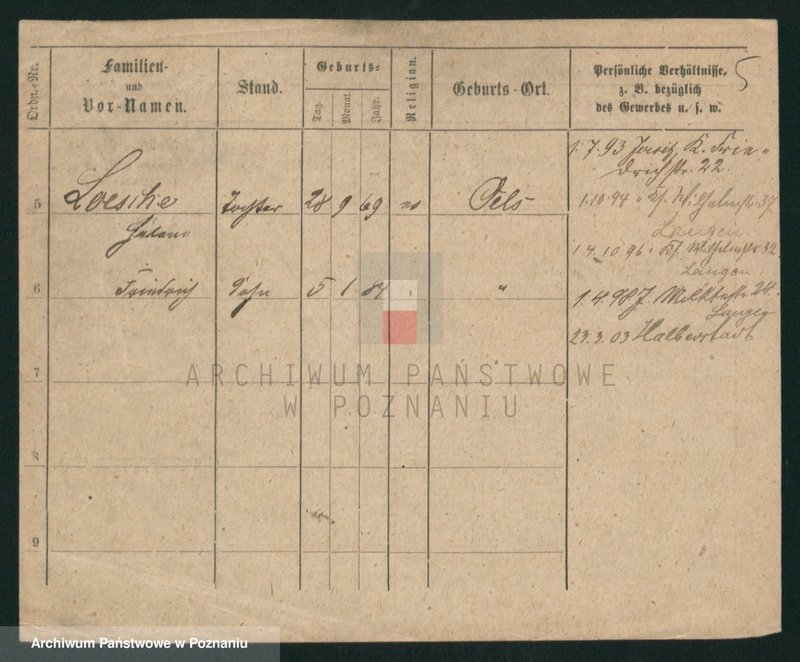 Ordn.-Nr.
Familien-
und
Vor-Namen.
Stand.
Geburts-
Tag.
Monat.
Jahr.
Religion.
Geburts-Ort.
Persönliche Verhältnisse,
z. B. bezüglich
des Gewerbes u. s. w.
5
1.7.93 Jersitz, K. Frie-
drichstr. 22
5 Loesche Tochter 28 9 69 ev Oels
Helene
1.10.94 " Kl. Wilhelmstr. 37
Langen
14.10.96 " Kl. Wilhelmstr. 32
Langen
6 Friedrich Sohn 5 1 "
1.4.98 J. 24
Langen
23.3.03 Halberstadt
7
8
9
ARCHIWUM PAŃSTWOWE
W POZNANIU
Archiwum Państwowe w Poznaniu